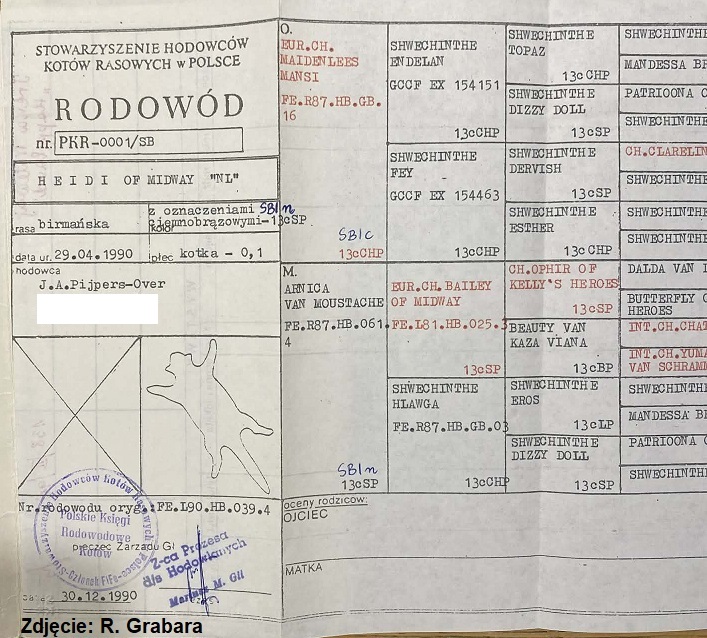 STOWARZYSZENIE HODOWCÓW
KOTÓW RASOWYCH w POLSCE
RODOWÓD
nr. PKR-0001/SB
HEIDI OF MIDWAY "NL"
rasa birmańska
z oznaczeniami SBIn
ciemnobrązowymi-13cSP
kolor
data ur. 29.04.1990
płec kotka - 0,1
hodowca
J.A.Pijpers-Over
Nr.rodowodu oryg.:FE.L90.HB.039.4
Stowarzyszenie Hodowców Kotów Rasowych w Polsce - Członek FIFe
Polskie Księgi
Rodowodowe
Kotów
prezes Zarządu Gł
Z-ca Prezesa
d/s Hodowlanych
Mariusz M. Gil
data 30.12.1990
O.
EUR.CH.
MAIDENLEES
MANSI
FE.R87.HB.GB.
16
SBIc
13cCHP
M.
ARNICA
VAN MOUSTACHE
FE.R87.HB.061.
4
SBIn
13cSP
SHWECHINTHE
ENDELAN
GCCF EX 154151
13cCHP
SHWECHINTHE
FEY
GCCF EX 154463
13cCHP
EUR.CH.BAILEY
OF MIDWAY
FE.L81.HB.025.3
13cSP
SHWECHINTHE
HLAWGA
FE.R87.HB.GB.03
13cCHP
SHWECHINTHE
TOPAZ
13cCHP
SHWECHINTHE
DIZZY DOLL
13cSP
SHWECHINTHE
DERVISH
13cSP
SHWECHINTHE
ESTHER
13c CHP
CH.OPHIR OF
KELLY'S HEROES
13cSP
BEAUTY VAN
KAZA VIANA
13cBP
SHWECHINTHE
EROS
13cLP
SHWECHINTHE
DIZZY DOLL
13cSP
SHWECHINTHE
MANDESSA BR
PATRIOONA C
SHWECHINTHE
CH.CLARELIN
SHWECHINTHE
SHWECHINTHE
SHWECHINTHE
DALDA VAN
BUTTERFLY
HEROES
INT.CH.CHAT
INT.CH.YUMA
VAN SCHRAMM
SHWECHINTHE
MANDESSA BR
PATRIOONA C
SHWECHINTHE
oceny rodziców:
OJCIEC
MATKA
Zdjęcie: R. Grabara